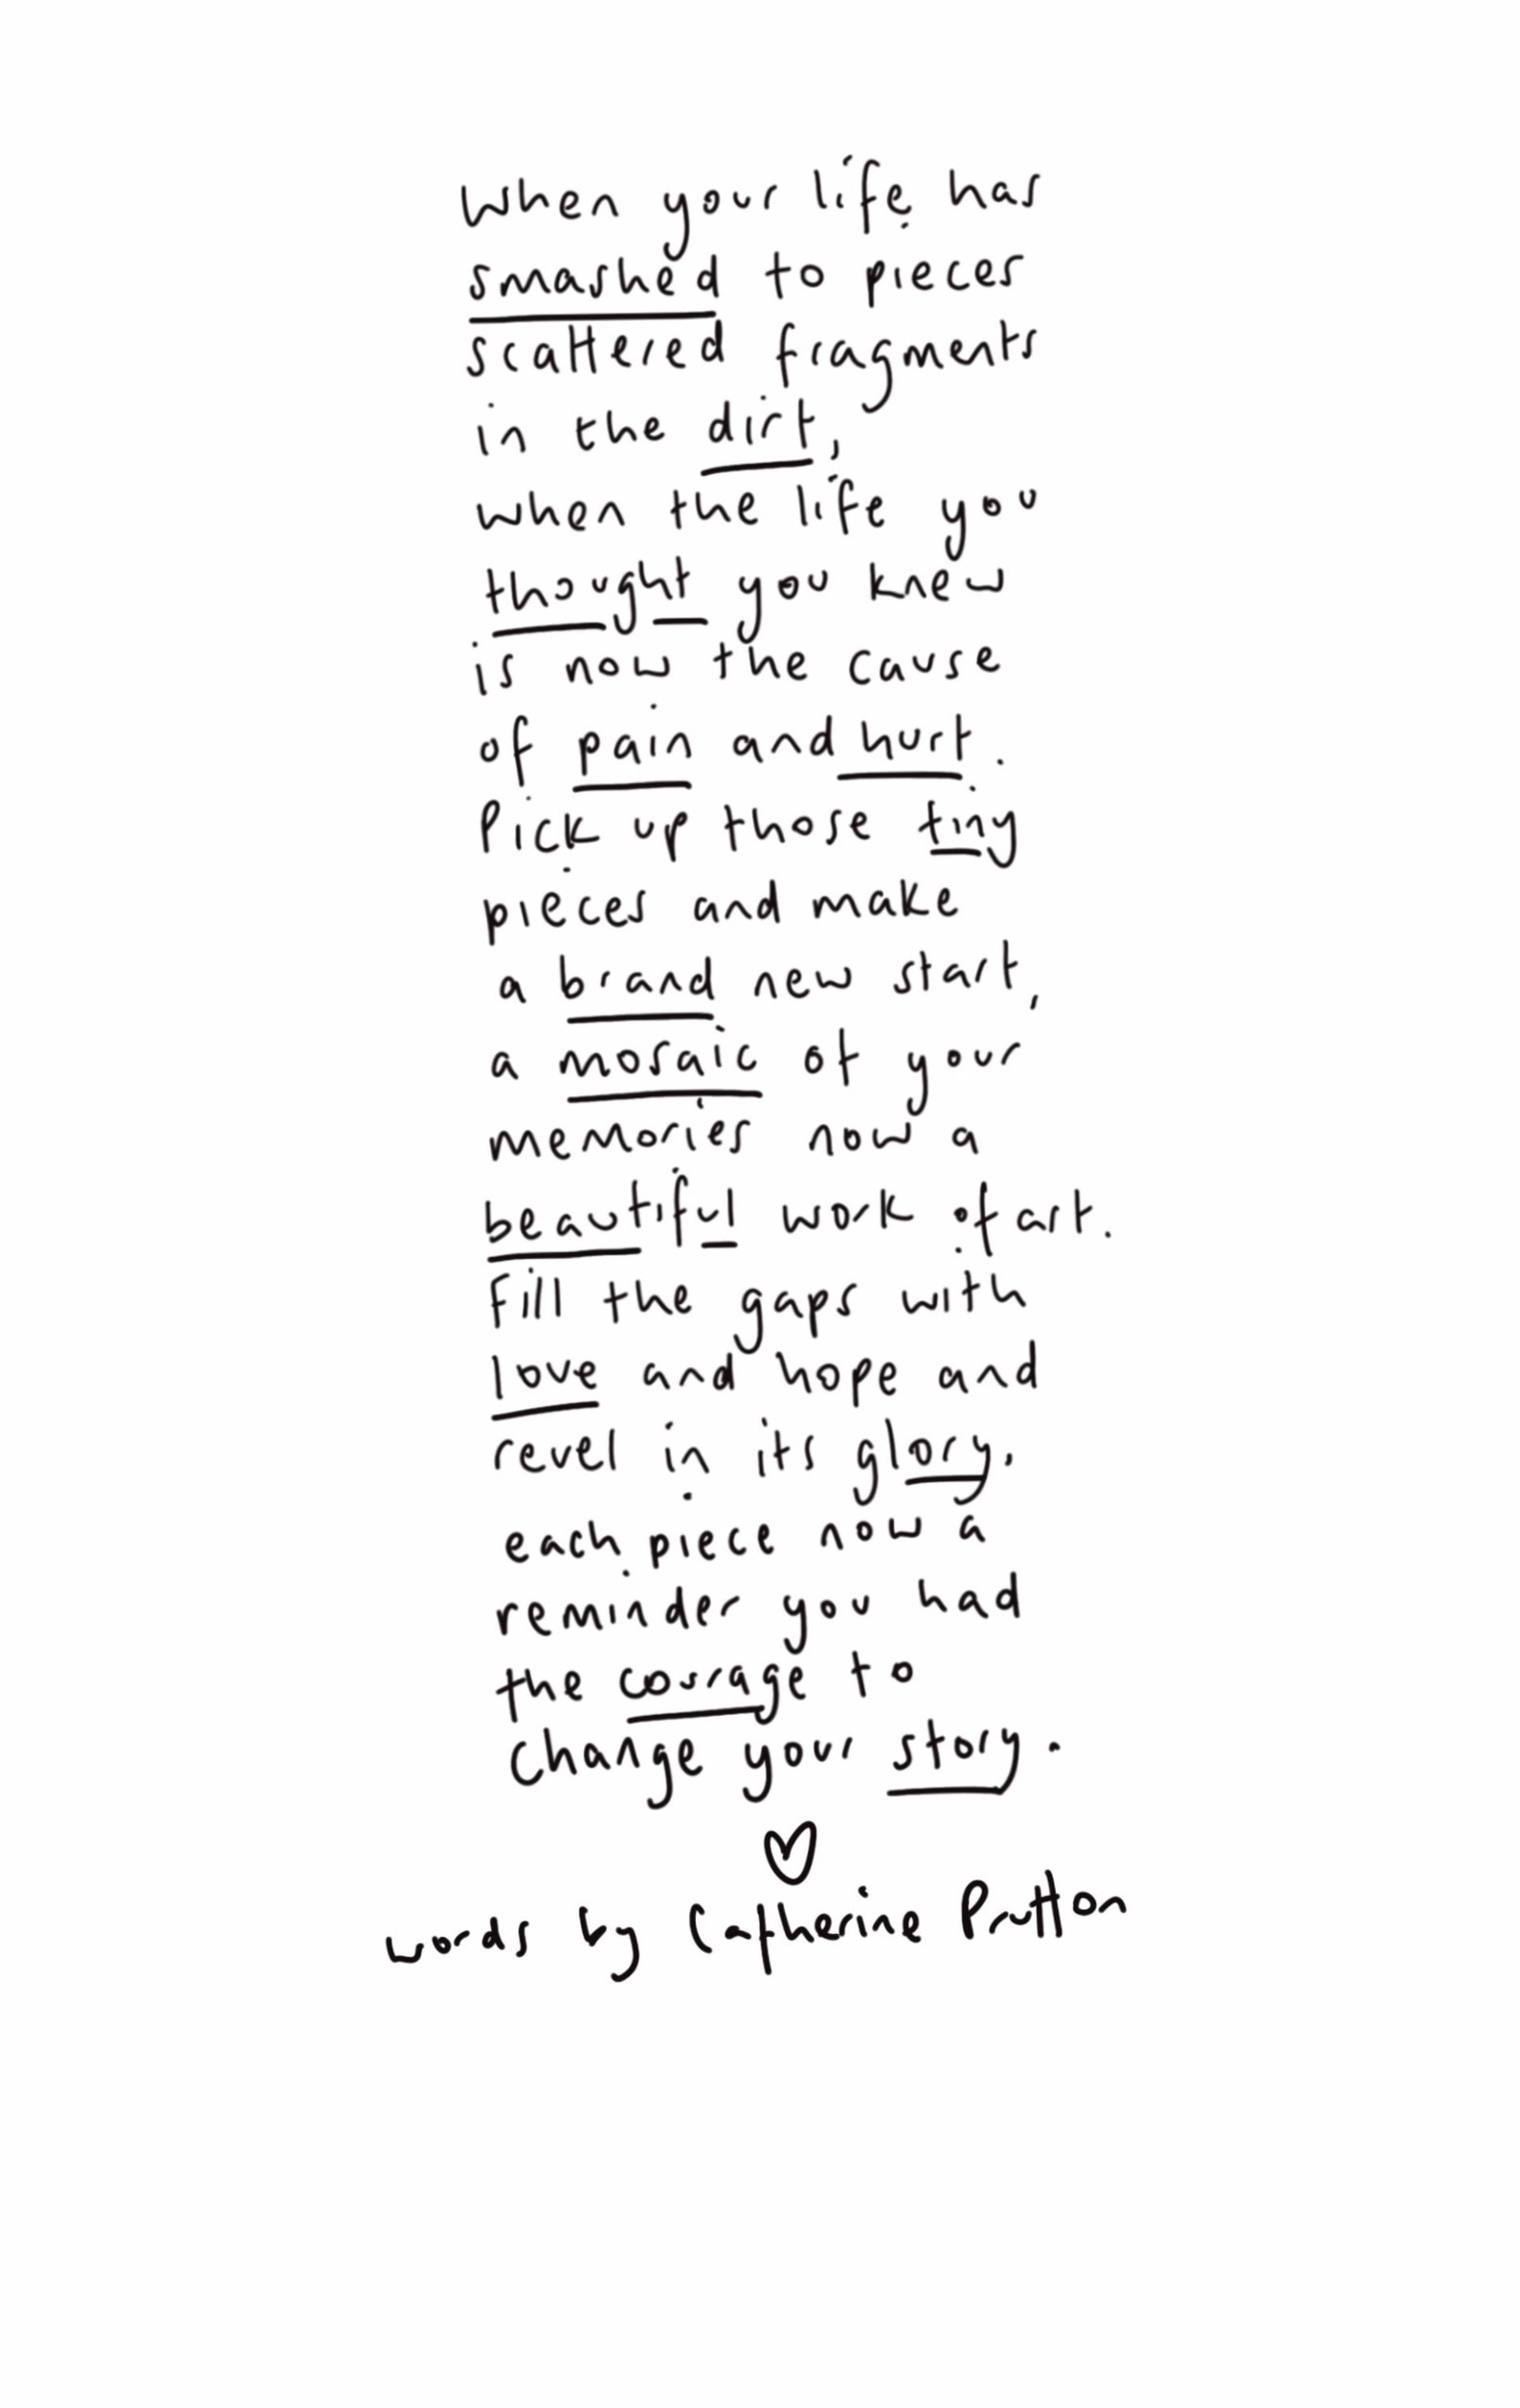 When your life has
smashed to pieces
scattered fragments
in the dirt,
when the life you
thought you knew
is now the cause
of pain and hurt.
Pick up those tiny
pieces and make
a brand new start,
a mosaic of your
memories now a
beautiful work of art.
Fill the gaps with
love and hope and
revel in its glory,
each piece now a
reminder you had
the courage to
change your story.
words by Catherine Prutton